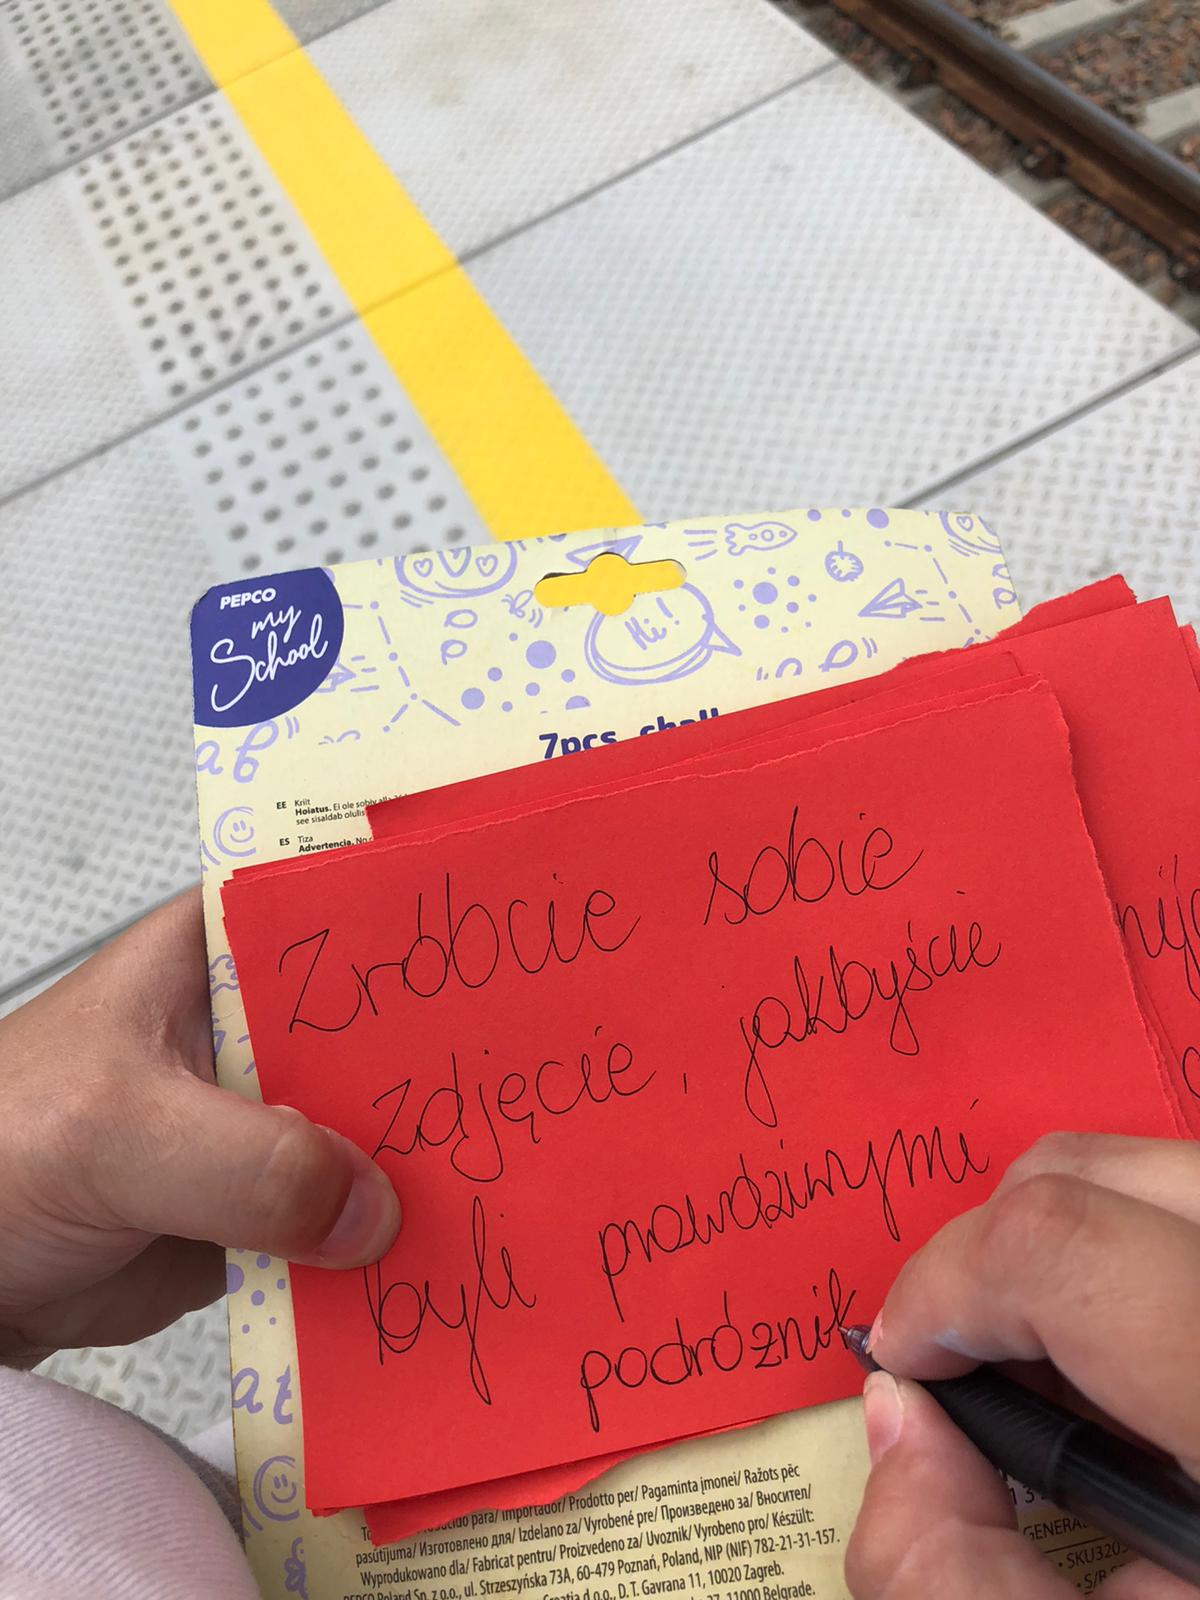 PEPCO
my
School
Hi!
7pcs
EE Kriit
Hoiatus. Ei ole sobiv
see sisaldab
ES Tiza
Advertencia. No
Zróbcie sobie
zdjęcie, jakbyście
byli prawdziwymi
podróznik
para/ Importador/ Prodotto per/ Pagaminta įmonei/ Ražots pēc
pasūtijuma/ Изготовлено для/ Izdelano za/ Vyrobené pre/ Произведено за/ Вносител/
Wyprodukowano dla/ Fabricat pentru/ Proizvedeno za/ Uvoznik/ Vyrobeno pro/ Készült:
PEPCO Poland Sp. z o.o., ul. Strzeszyńska 73A, 60-479 Poznań, Poland, NIP (NIF) 782-21-31-157.
Croatia d.o.o., D. T. Gavrana 11, 10020 Zagreb.
11000 Belgrade.